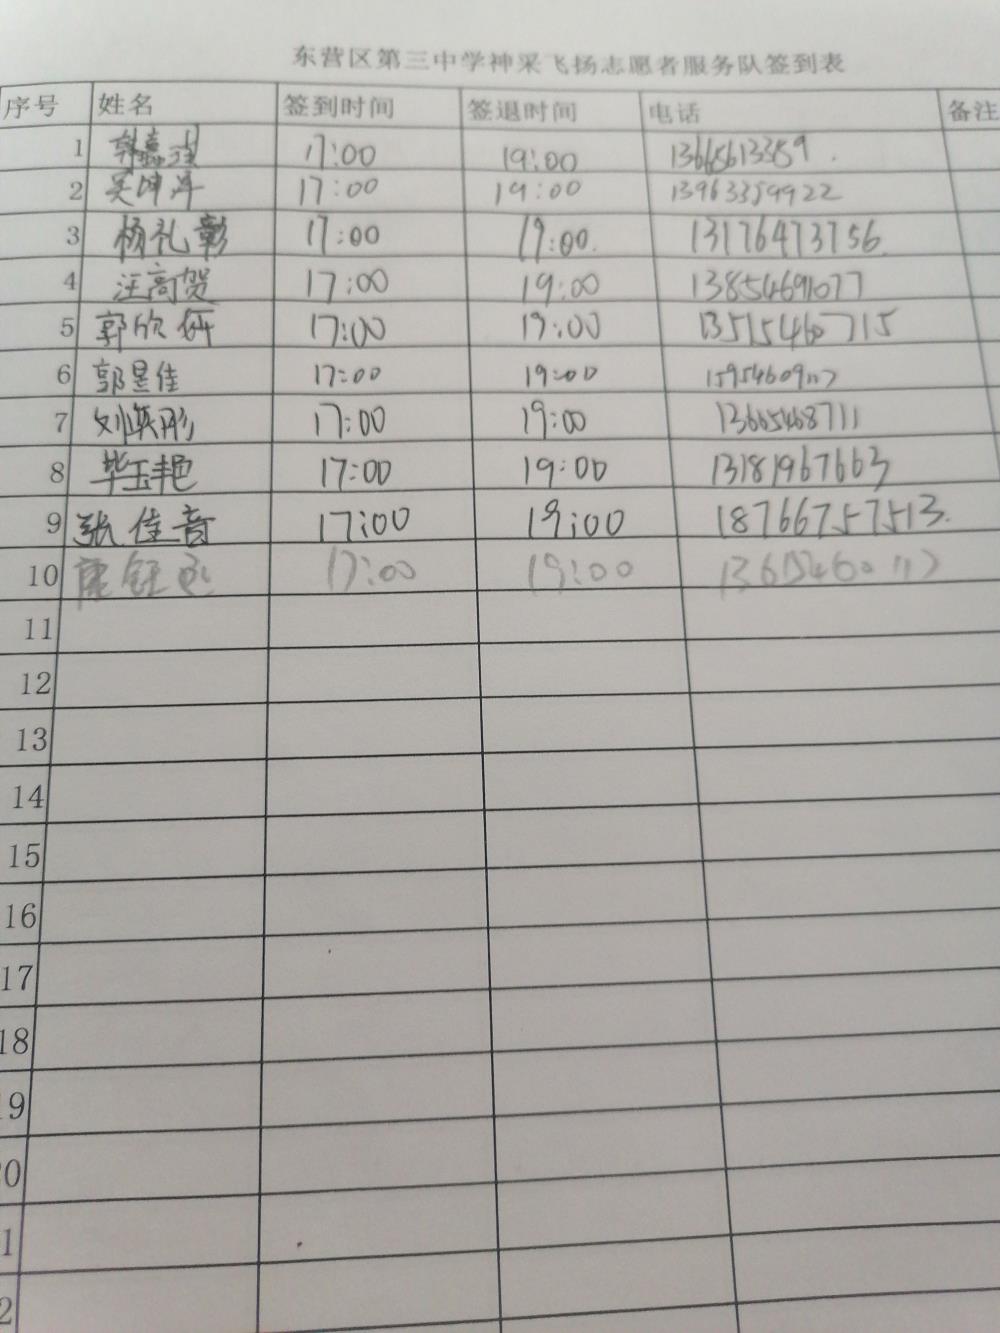 东营区第三中学神采飞扬志愿者服务队签到表
序号 姓名 签到时间 签退时间 电话 备注
1 韩嘉 17:00 19:00
2 吴坤洋 17:00 19:00 13963359922
3 杨礼彰 17:00 19:00 13176473756
4 汪高贺 17:00 19:00 13854691077
5 郭欣妍 17:00 19:00 13515460715
6 郭昱佳 17:00 19:00
7 刘奕彤 17:00 19:00 13605468711
8 毕玉艳 17:00 19:00 13181967663
9 张佳音 17:00 19:00 18766757513
10 17:00 19:00
11
12
13
14
15
16
17
18
19